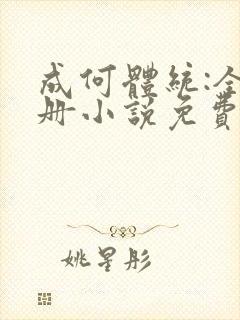 成何體統:全
册小說免費
姚星彤